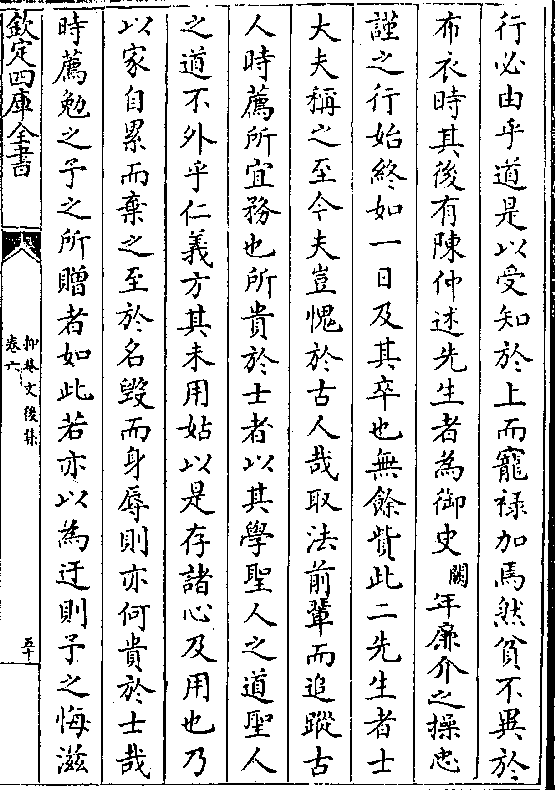 行必由乎道是以受知於上而寵祿加焉然貧不異於
布衣時其後有陳仲述先生者為御史闕年廉介之操忠
謹之行始終如一日及其卒也無餘貲此二先生者士
大夫稱之至今夫豈愧於古人哉取法前輩而追蹤古
人時薦所宜務也所貴於士者以其學聖人之道聖人
之道不外乎仁義方其未用姑以是存諸心及用也乃
以家自累而棄之至於名毀而身辱則亦何貴於士哉
時薦勉之予之所贈者如此若亦以為迂則予之悔滋
欽定四庫全書
抑菴文後集
卷六
五十